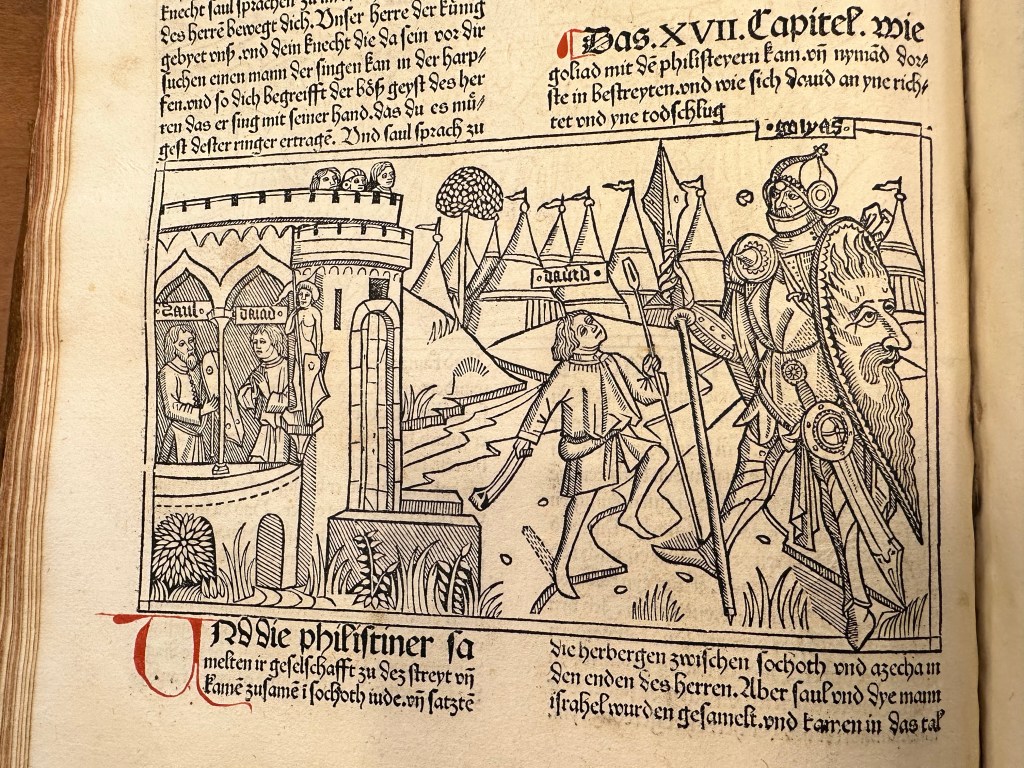 knecht saul sprachen zu im
des herrē bewegt dich. Vnser herre der künig
gebyet vnß .vnd dein knecht die da sein vor dir
suchen einen mann der singen kan in der harp⸗
fen.vnd so dich begreifft der böß geyst des her
ren das er sing mit seiner hand.das du es mü⸗
gest dester ringer ertragē. Vnd saul sprach zu
Das .XVII. Capitel. wie
goliad mit dē philisteyern kam.vn̄ nymād dor⸗
ste in bestreyten.vnd wie sich dauid an yne rich⸗
tet vnd yne todschlug
·golyas·
·dauid·
·Saul·
dauid
VNd die philistiner sa
melten ir geselschafft zu dez streyt vn̄
kamē zusamē ī sochoth iude.vn̄ satztē
die herbergen zwischen sochoth vnd azecha in
den enden des herren. Aber saul vnd dye mann
israhel wurden gesamelt.vnd kamen in das tal